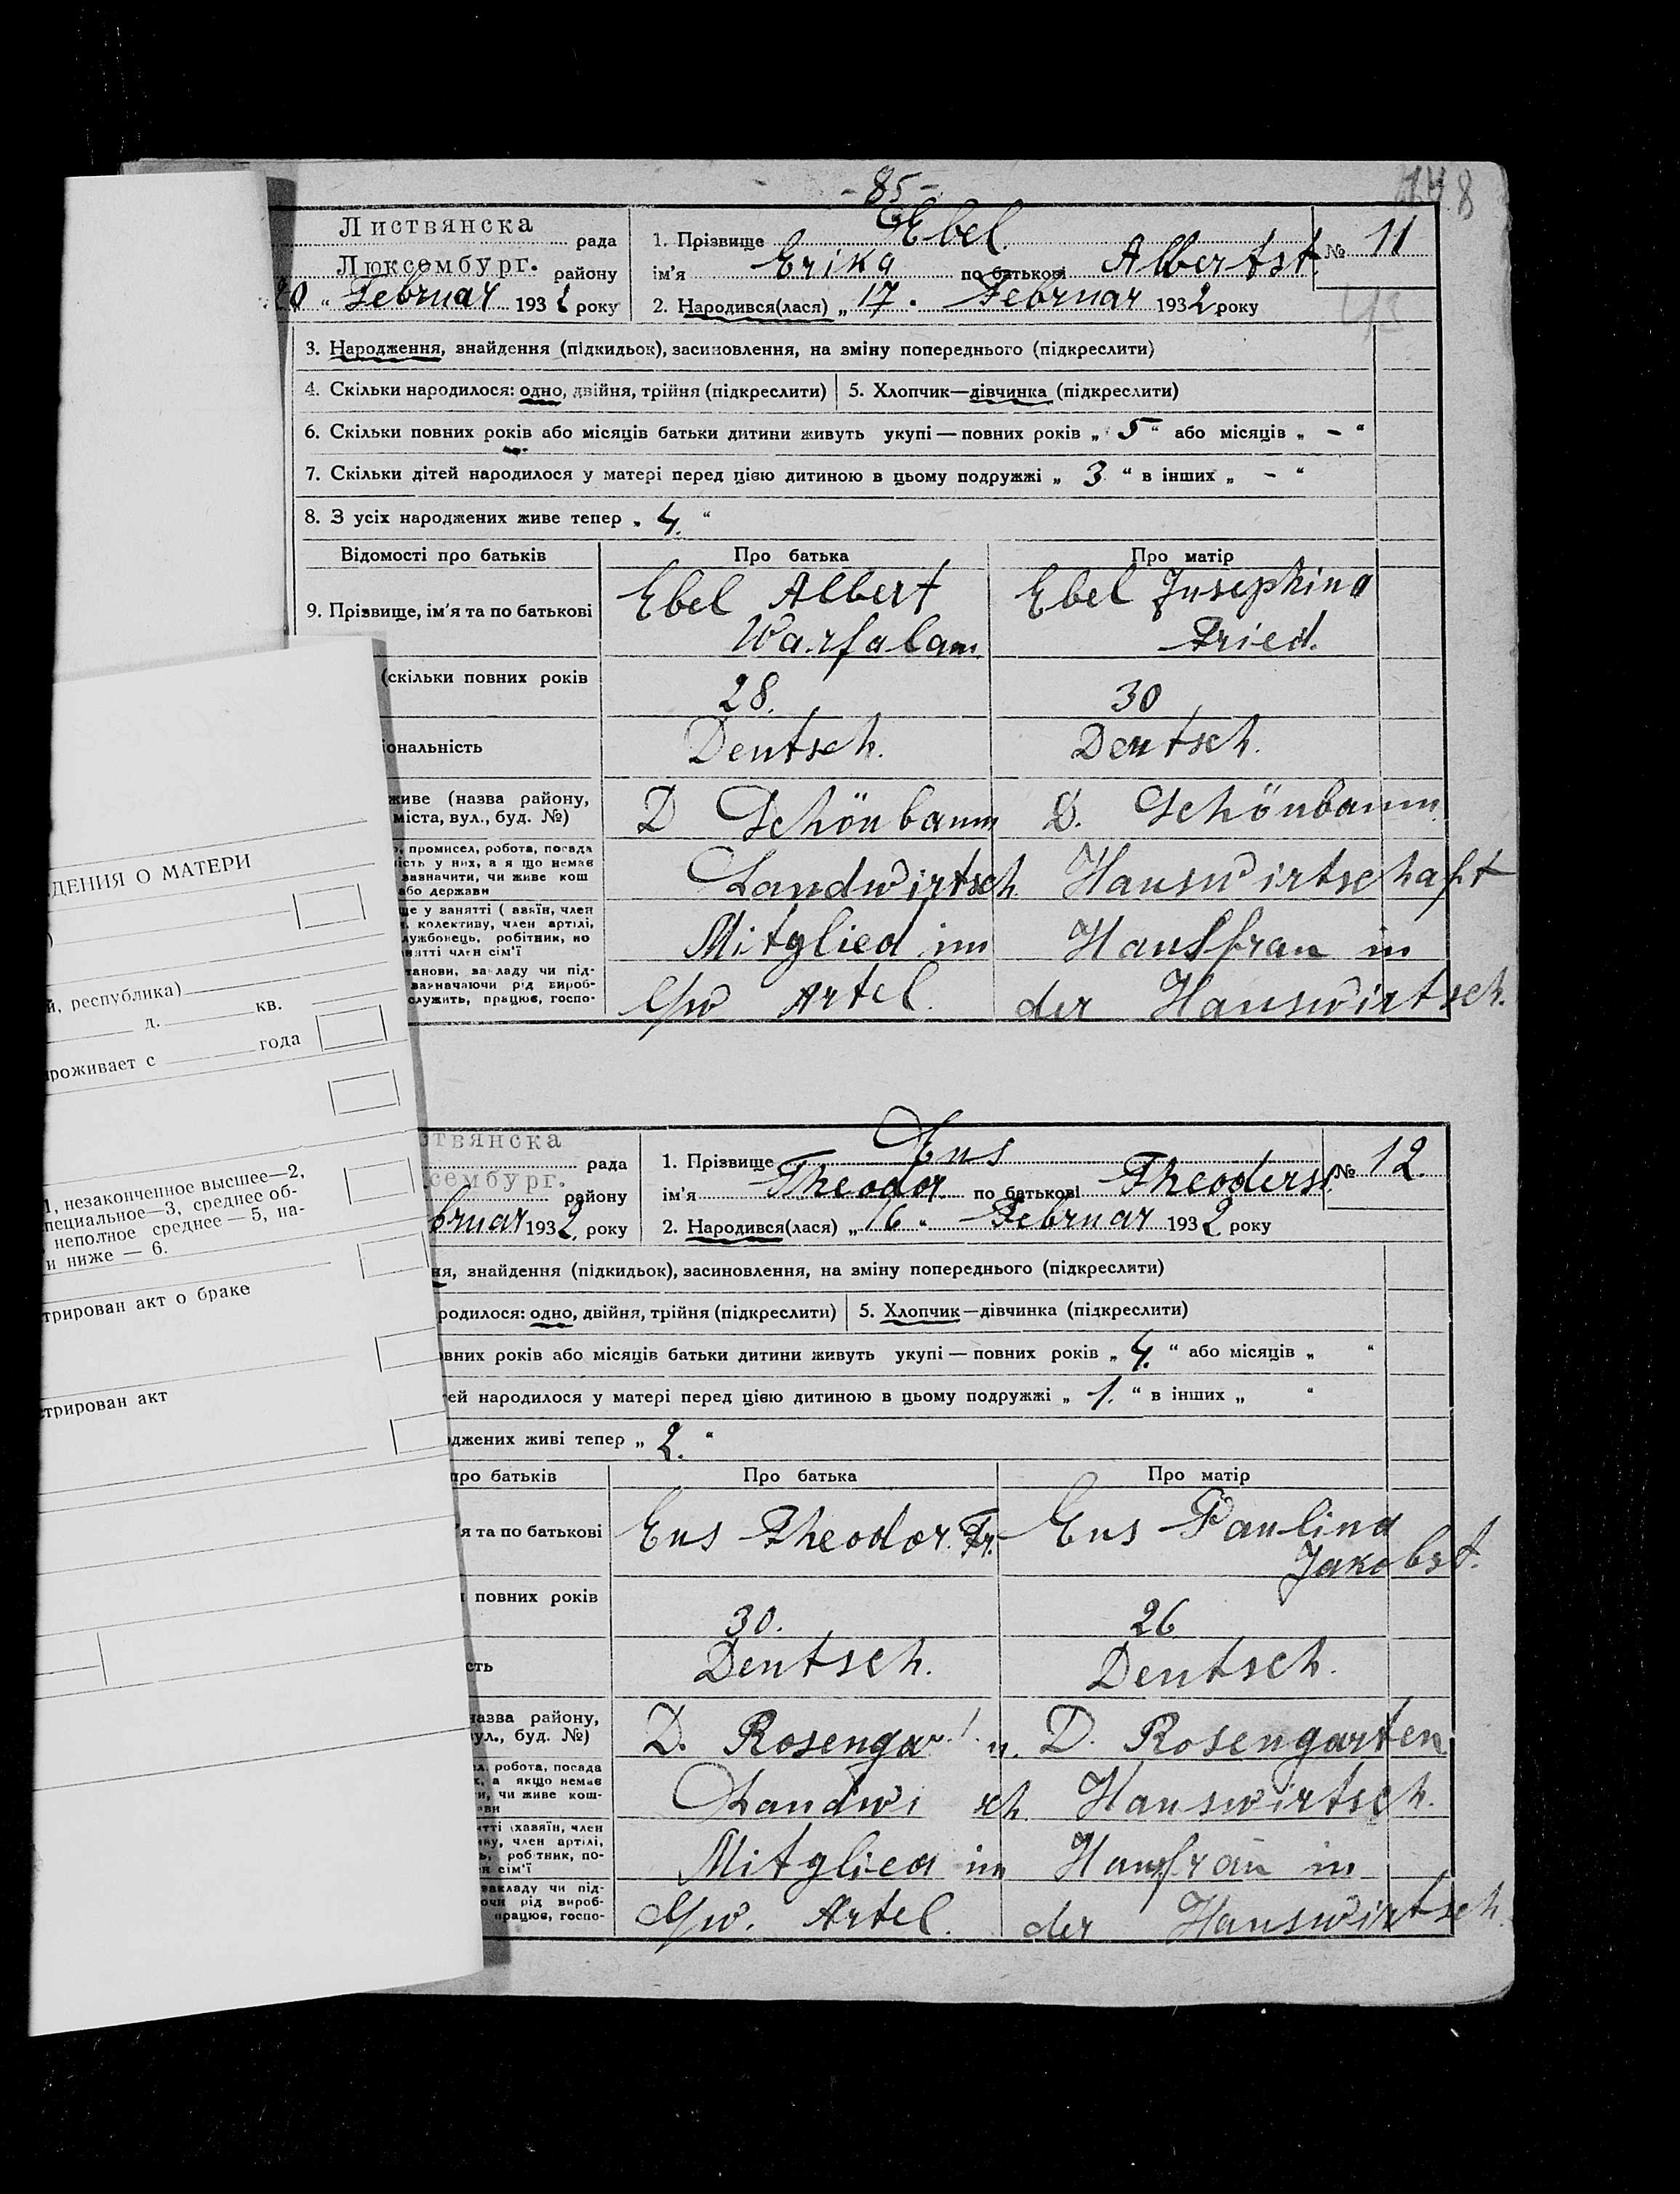 - 85 -
8
Листвянска рада
Люксембург. району
Februar 1932 року
1. Прізвище Ebel
ім'я Erika по батькові Albertst.
№ 11
2. Народився(лася) „17. Februar 1932 року
3. Народження, знайдення (підкидьок), засиновлення, на зміну попереднього (підкреслити)
4. Скільки народилося: одно, двійня, трійня (підкреслити)
5. Хлопчик—дівчинка (підкреслити)
6. Скільки повних років або місяців батьки дитини живуть укупі — повних років „ 5 “ або місяців „ – “
7. Скільки дітей народилося у матері перед цією дитиною в цьому подружжі „ 3 “ в інших „ – “
8. З усіх народжених живе тепер „ 4. “
Відомості про батьків Про батька Про матір
9. Прізвище, ім'я та по батькові
Ebel Albert
Warfalam.
Ebel Josephina
Fried.
(скільки повних років
28. 30
іональність
Deutsch. Deutsch.
живе (назва району,
міста, вул., буд. №)
D Schönbaum D. Schönbaum
, промисел, робота, посада
ість у них, а я що немає
зазначити, чи живе кош
або держави
Landwirtsch Hauswirtschaft
ще у занятті ( авяїн, член
колективу, член артілі,
лужбонець, робітник, по
нятті член сім'ї
Mitglied im Hausfrau in
танови, закладу чи під-
зазначаючи рід вироб-
служить, працює, госпо-
Artel. der Hauswirtsch.
ДЕНИЯ О МАТЕРИ
)
й, республика)
д. кв.
проживает с года
1, незаконченное высшее—2,
пециальное—3, среднее об-
, неполное среднее — 5, на-
и ниже — 6.
трирован акт о браке
трирован акт
ствянска рада
сембург. району
bruar 1932 року
1. Прізвище Ens
ім'я Theodor. по батькові Theoderst.
№ 12.
2. Народився(лася) „16“ Februar 1932 року
ня, знайдення (підкидьок), засиновлення, на зміну попереднього (підкреслити)
родилося: одно, двійня, трійня (підкреслити)
5. Хлопчик—дівчинка (підкреслити)
овних років або місяців батьки дитини живуть укупі — повних років „ 4. “ або місяців „ “
тей народилося у матері перед цією дитиною в цьому подружжі „ 1. “ в інших „ “
оджених живі тепер „ 2. “
про батьків Про батька Про матір
'я та по батькові
Ens Theodor. Fr.
Ens Paulina
Jakobst.
повних років
30. 26
сть
Deutsch. Deutsch.
назва району,
ул., буд. №)
D. Rosengar n. D. Rosengarten
л. робота, посада
х, а якщо немає
ти, чи живе кош-
ави
Landwi sch. Hauswirtsch.
тті (хавяїн, член
иву, член артілі,
ь, роб тник, по-
ен сім'ї
Mitglied im Hausfrau in
закладу чи під-
ючи рід вироб-
працює, госпо-
Artel. der Hauswirtsch.